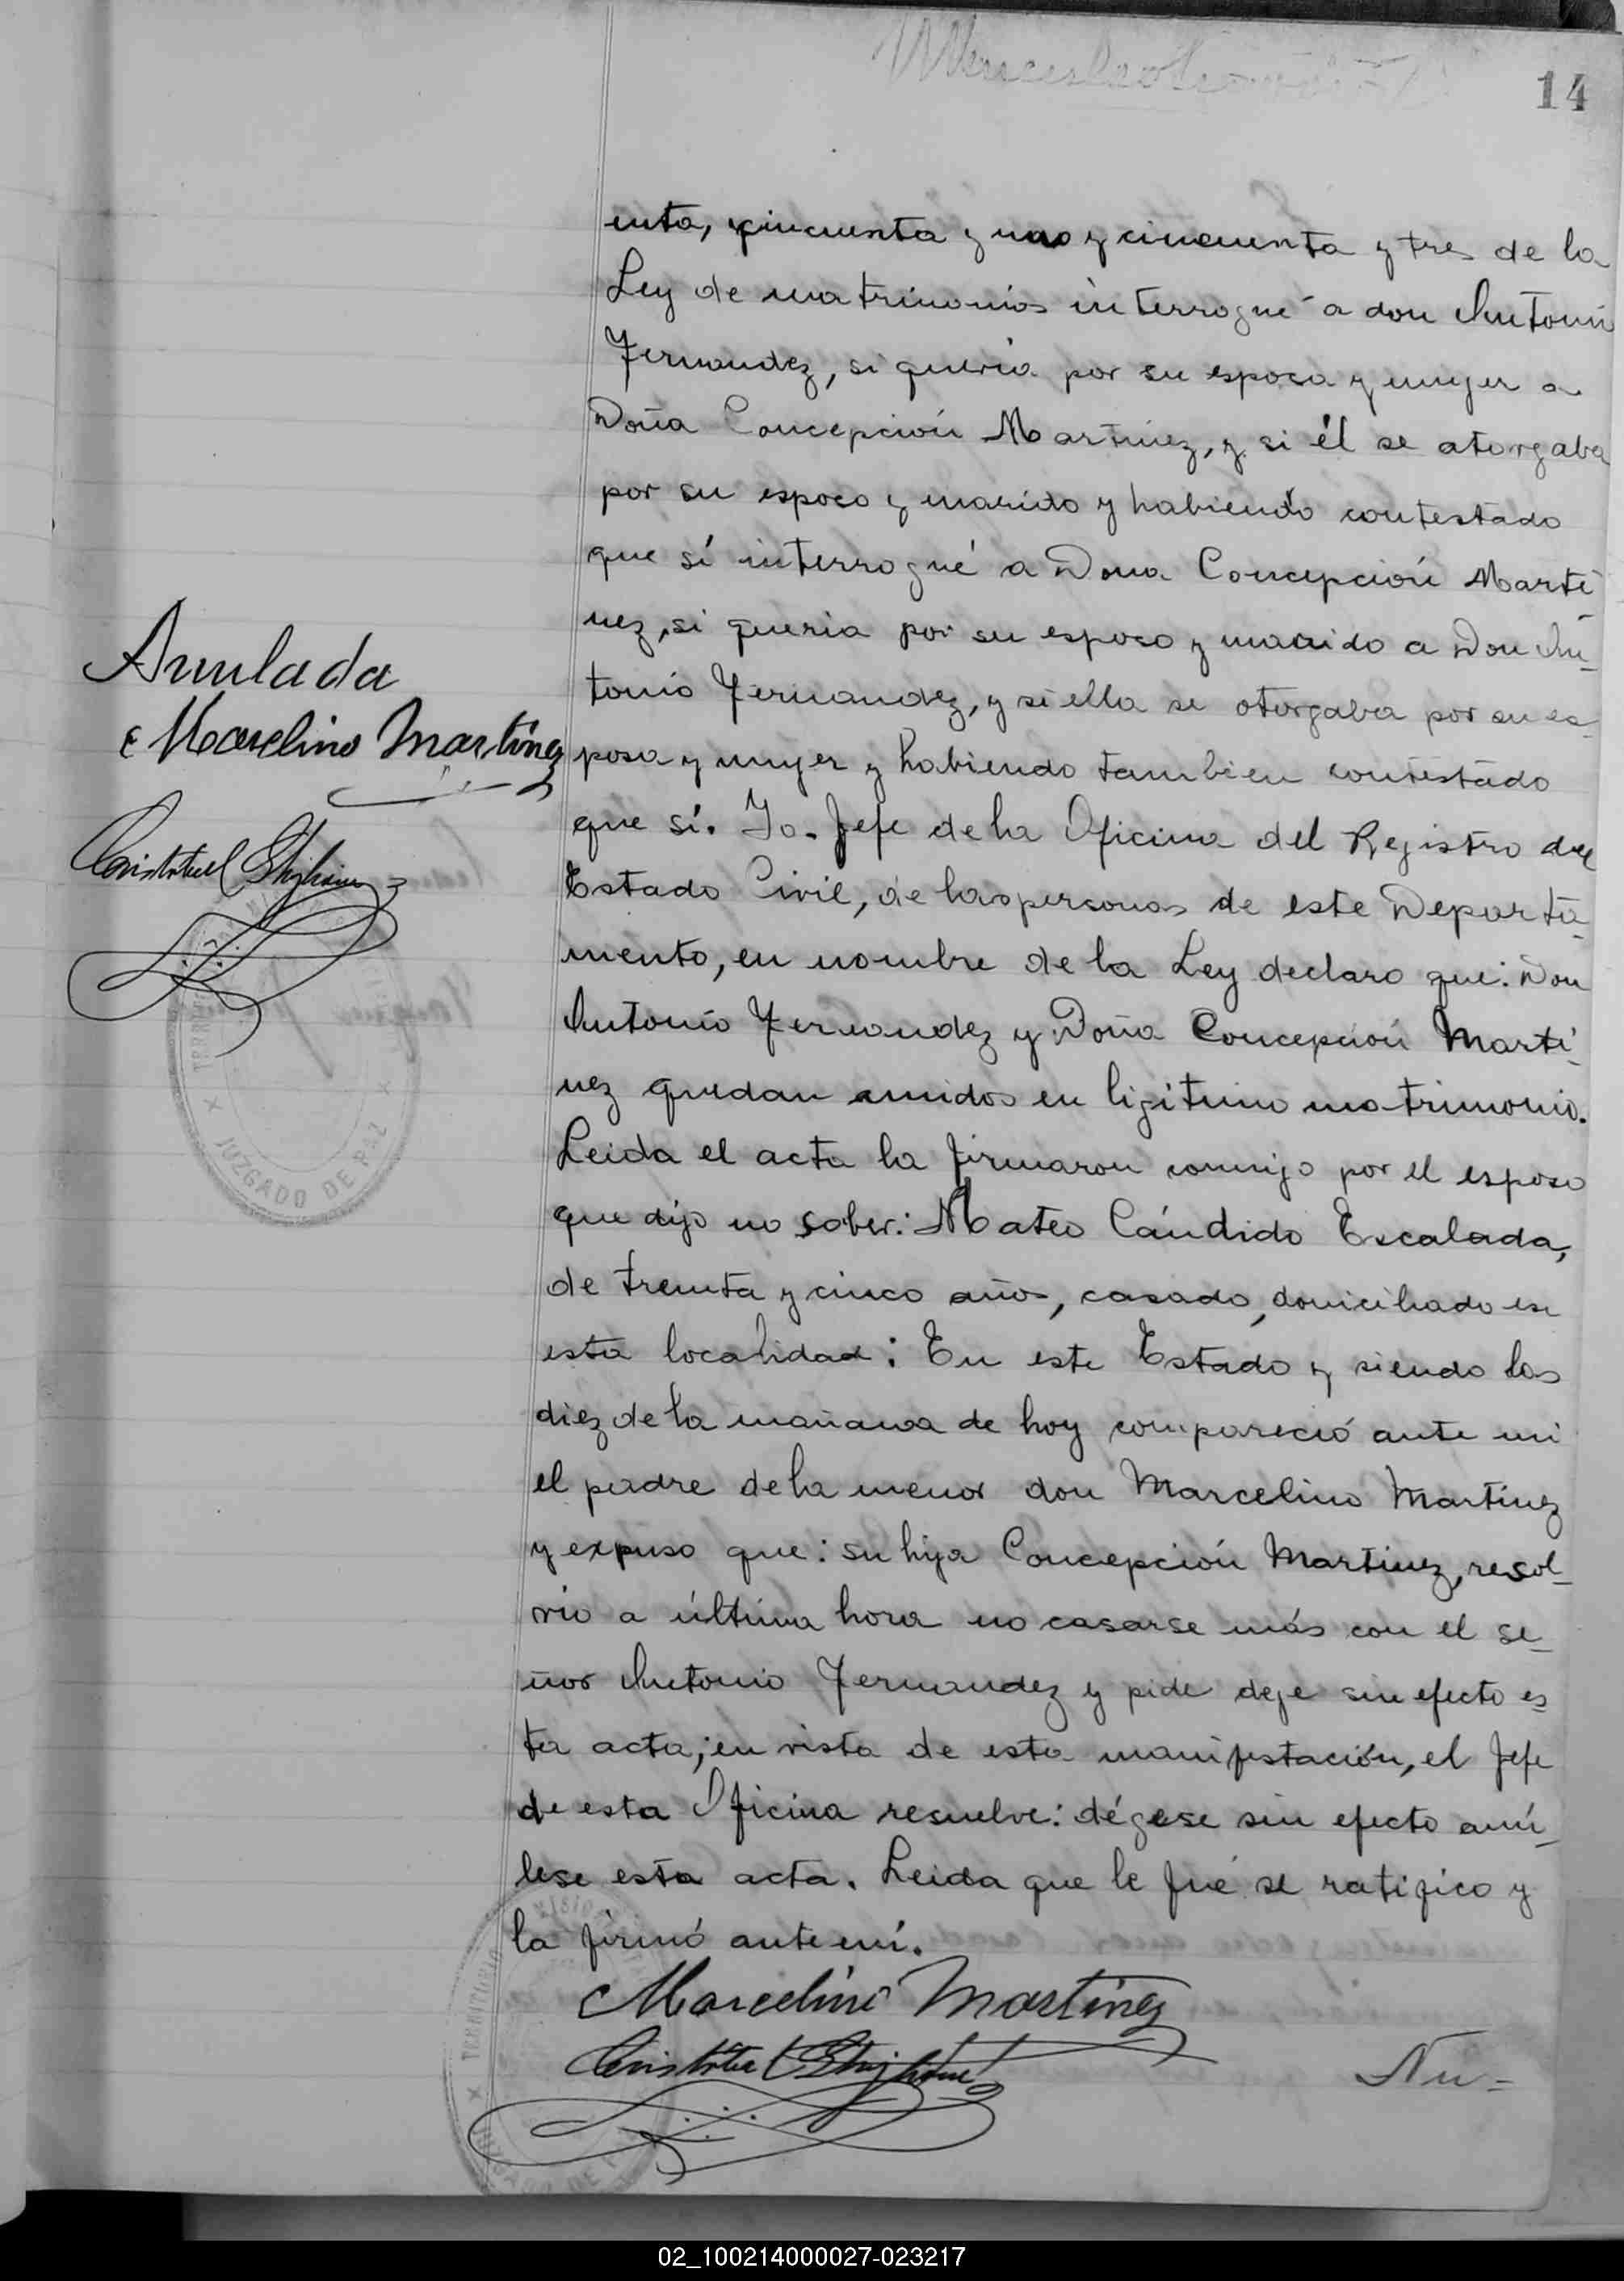 14
enta, cincuenta y uno y cincuenta y tres de la
Ley de matrimonios interrogué a don Antonio
Fernandez, si queria por su esposa y mujer a
Doña Concepción Martinez, y si él se atorgaba
por su esposo y marido y habiendo contestado
que sí interrogué a Dona Concepción Marti-
nez, si queria por su esposo y marido a Don An-
tonio Fernandez, y si ella se otorgaba por su es-
posa y mujer y habiendo tambien contestado
que sí. Yo. Jefe de la Oficina del Registro del
Estado Civil, de las personas de este Departa-
mento, en nombre de la Ley declaro que: Don
Antonio Fernandez y Doña Concepción Marti-
nez quedan unidos en ligítimo matrimonio.
Leida el acta la firmaron conmigo por el esposo
que dijo no saber: Mateo Cándido Escalada,
de treinta y cinco años, casado, domiciliado en
esta localidad: En este Estado y siendo las
diez de la mañana de hoy compareció ante mi
el padre de la menor don Marcelino Martinez
y expuso que: su hija Concepción Martinez, resol-
vio a última hora no casarse más con el se-
ñor Antonio Fernandez y pide deje sin efecto es-
ta acta; en vista de esta manifestación, el Jefe
de esta Oficina resuelve: dégese sin efecto anú-
lese esta acta. Leida que le fué se ratifico y
la firmó ante mí.
Marcelino Martinez
Nu-
Anulada
Marcelino Martinez
JUZGADO DE PAZ
02_100214000027-023217